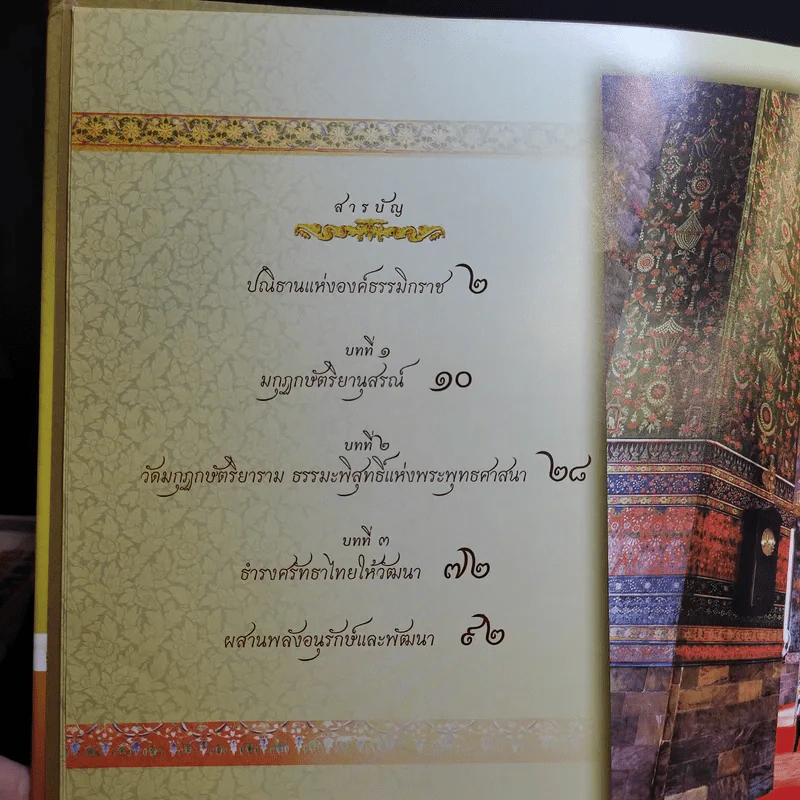 สารบัญ
ปณิธานแห่งองค์ธรรมิกราช ๒
บทที่ ๑
มกุฏกษัตริยานุสรณ์ ๑๐
บทที่ ๒
วัดมกุฏกษัตริยาราม ธรรมะพิสุทธิ์แห่งพระพุทธศาสนา ๒๘
บทที่ ๓
ธำรงศรัทธาไทยให้วัฒนา ๗๒
ผสานพลังอนุรักษ์และพัฒนา ๙๒